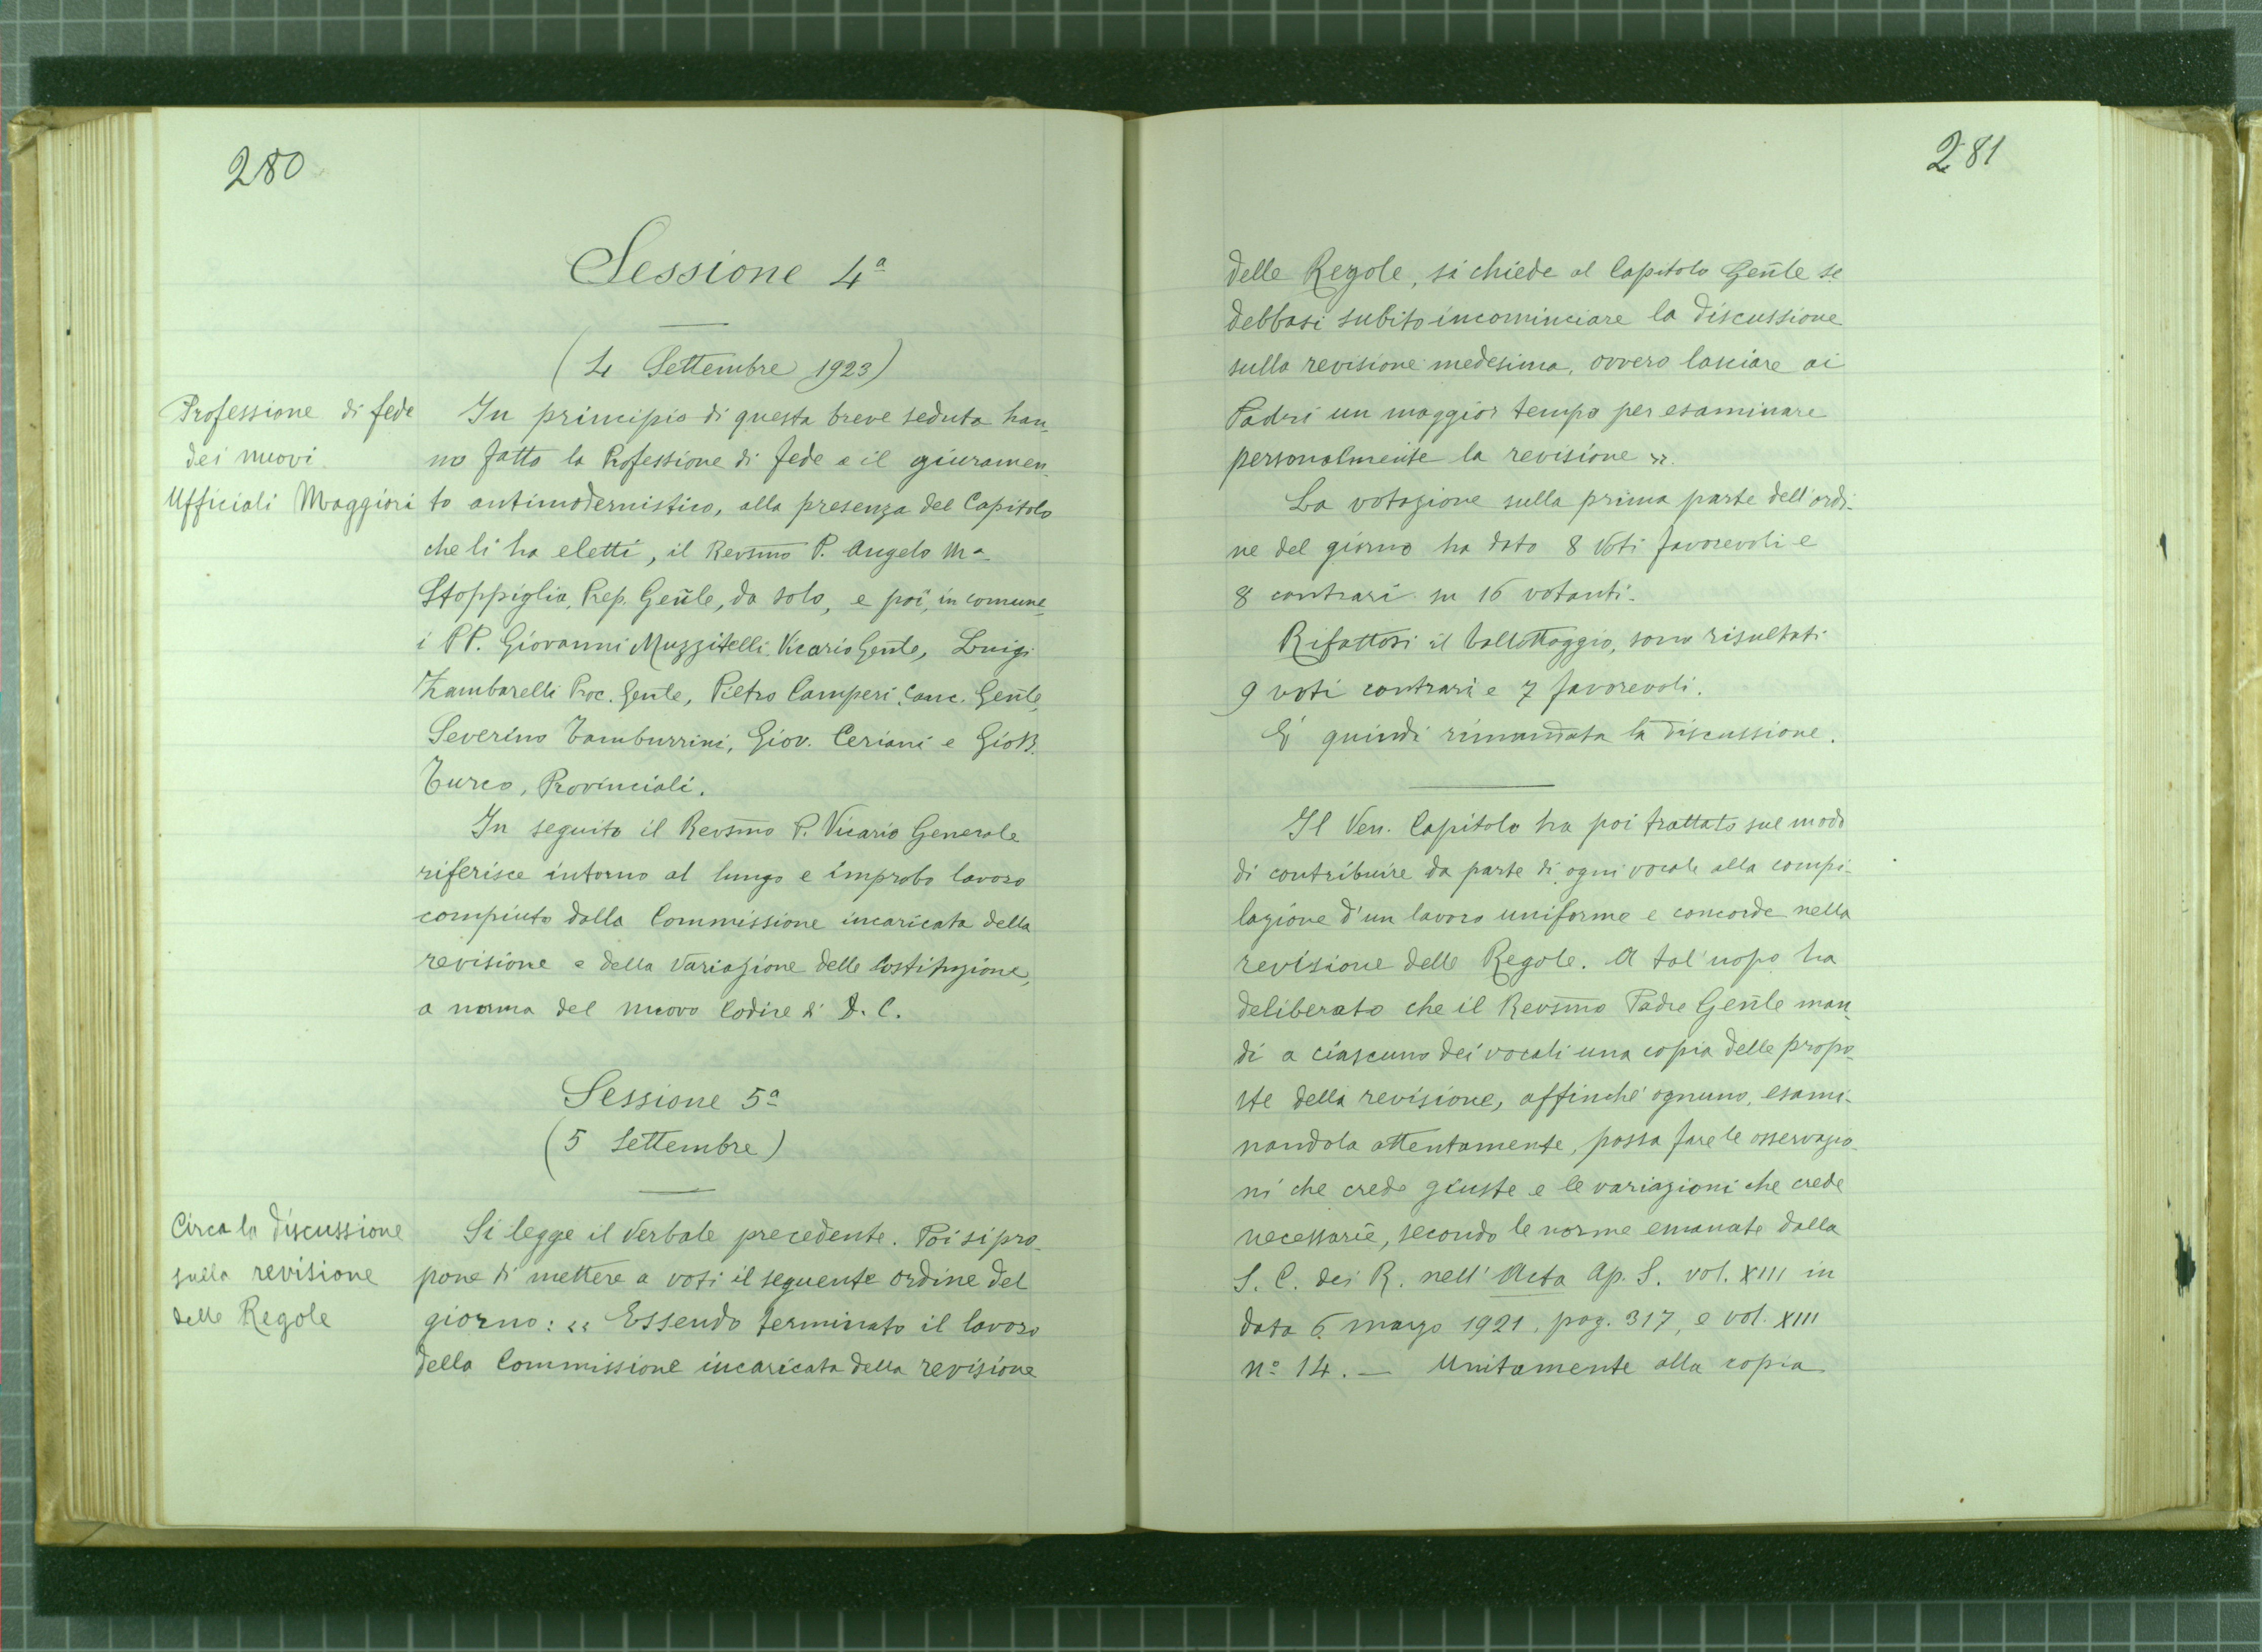 280
Sessione 4ª
(4 Settembre 1923)
Professione di fede
dei nuovi
Ufficiali Maggiori
In principio di questa breve seduta han-
no fatto la Professione di fede e il giuramen-
to antimodernistico, alla presenza del Capitolo
che li ha eletti, il Revsmo P. Angelo Mª
Stoppiglia, Prep. Gen̄le, da solo, e poi, in comune,
i PP. Giovanni Muzzitelli Vicario Gen̄le, Luigi
Zambarelli Proc. Gen̄le, Pietro Camperi Canc. Gen̄le,
Severino Tamburrini, Giov. Ceriani e Gio B.
Turco, Provinciali.
In seguito il Revsmo P. Vicario Generale
riferisce intorno al lungo e improbo lavoro
compiuto dalla Commissione incaricata della
revisione e della variazione delle Costituzione,
a norma del nuovo Codice di D. C.
Sessione 5ª
(5 Settembre)
Circa la discussione
sulla revisione
delle Regole
Si legge il Verbale precedente. Poi si pro-
pone di mettere a voti il seguente ordine del
giorno: « Essendo terminato il lavoro
della Commissione incaricata della revisione
281
delle Regole, si chiede al Capitolo Gen̄le se
debbasi subito incominciare la discussione
sulla revisione medesima, ovvero lasciare ai
Padri un maggior tempo per esaminare
personalmente la revisione ».
La votazione sulla prima parte dell'ordi-
ne del giorno ha dato 8 voti favorevoli e
8 contrari su 16 votanti.
Rifattosi il ballottaggio, sono risultati
9 voti contrari e 7 favorevoli.
E' quindi rimandata la discussione.
Il Ven. Capitolo ha poi trattato sul modo
di contribuire da parte di ogni vocale alla compi-
lazione d'un lavoro uniforme e concorde nella
revisione delle Regole. A tal'uopo ha
deliberato che il Revsmo Padre Gen̄le man-
di a ciascuno dei vocali una copia delle propo-
ste della revisione, affinchè ognuno, esami-
nandola attentamente, possa fare le osservazio-
ni che crede giuste e le variazioni che crede
necessarie, secondo le norme emanate dalla
S. C. dei R. nell' Acta Ap. S. vol. XIII in
data 6 marzo 1921, pag. 317, e vol. XIII
nº 14. — Unitamente alla copia